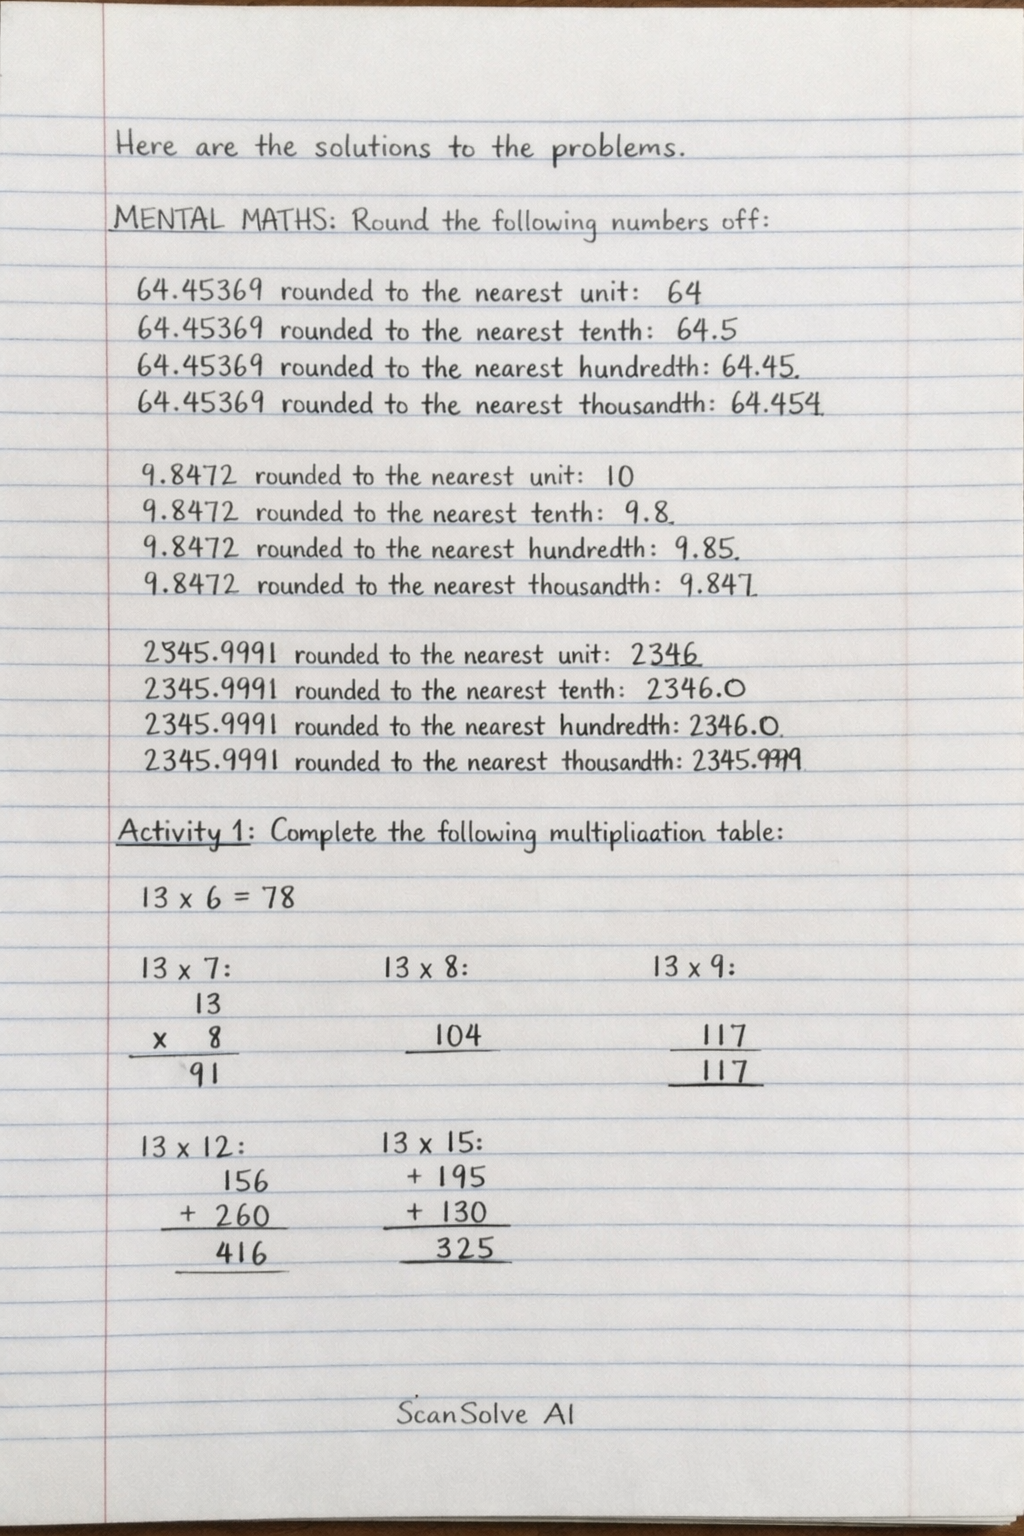 Here are the solutions to the problems.
MENTAL MATHS: Round the following numbers off:
64.45369 rounded to the nearest unit: 64
64.45369 rounded to the nearest tenth: 64.5
64.45369 rounded to the nearest hundredth: 64.45.
64.45369 rounded to the nearest thousandth: 64.454.
9.8472 rounded to the nearest unit: 10
9.8472 rounded to the nearest tenth: 9.8.
9.8472 rounded to the nearest hundredth: 9.85.
9.8472 rounded to the nearest thousandth: 9.847.
2345.9991 rounded to the nearest unit: 2346.
2345.9991 rounded to the nearest tenth: 2346.0
2345.9991 rounded to the nearest hundredth: 2346.0.
2345.9991 rounded to the nearest thousandth: 2345.999
Activity 1: Complete the following multipliaation table:
13 x 6 = 78
13 x 7: 13 x 8: 13 x 9:
13
x 8 104 117
91 117
13 x 12: 13 x 15:
156 + 195
+ 260 + 130
416 325
ScanSolve AI